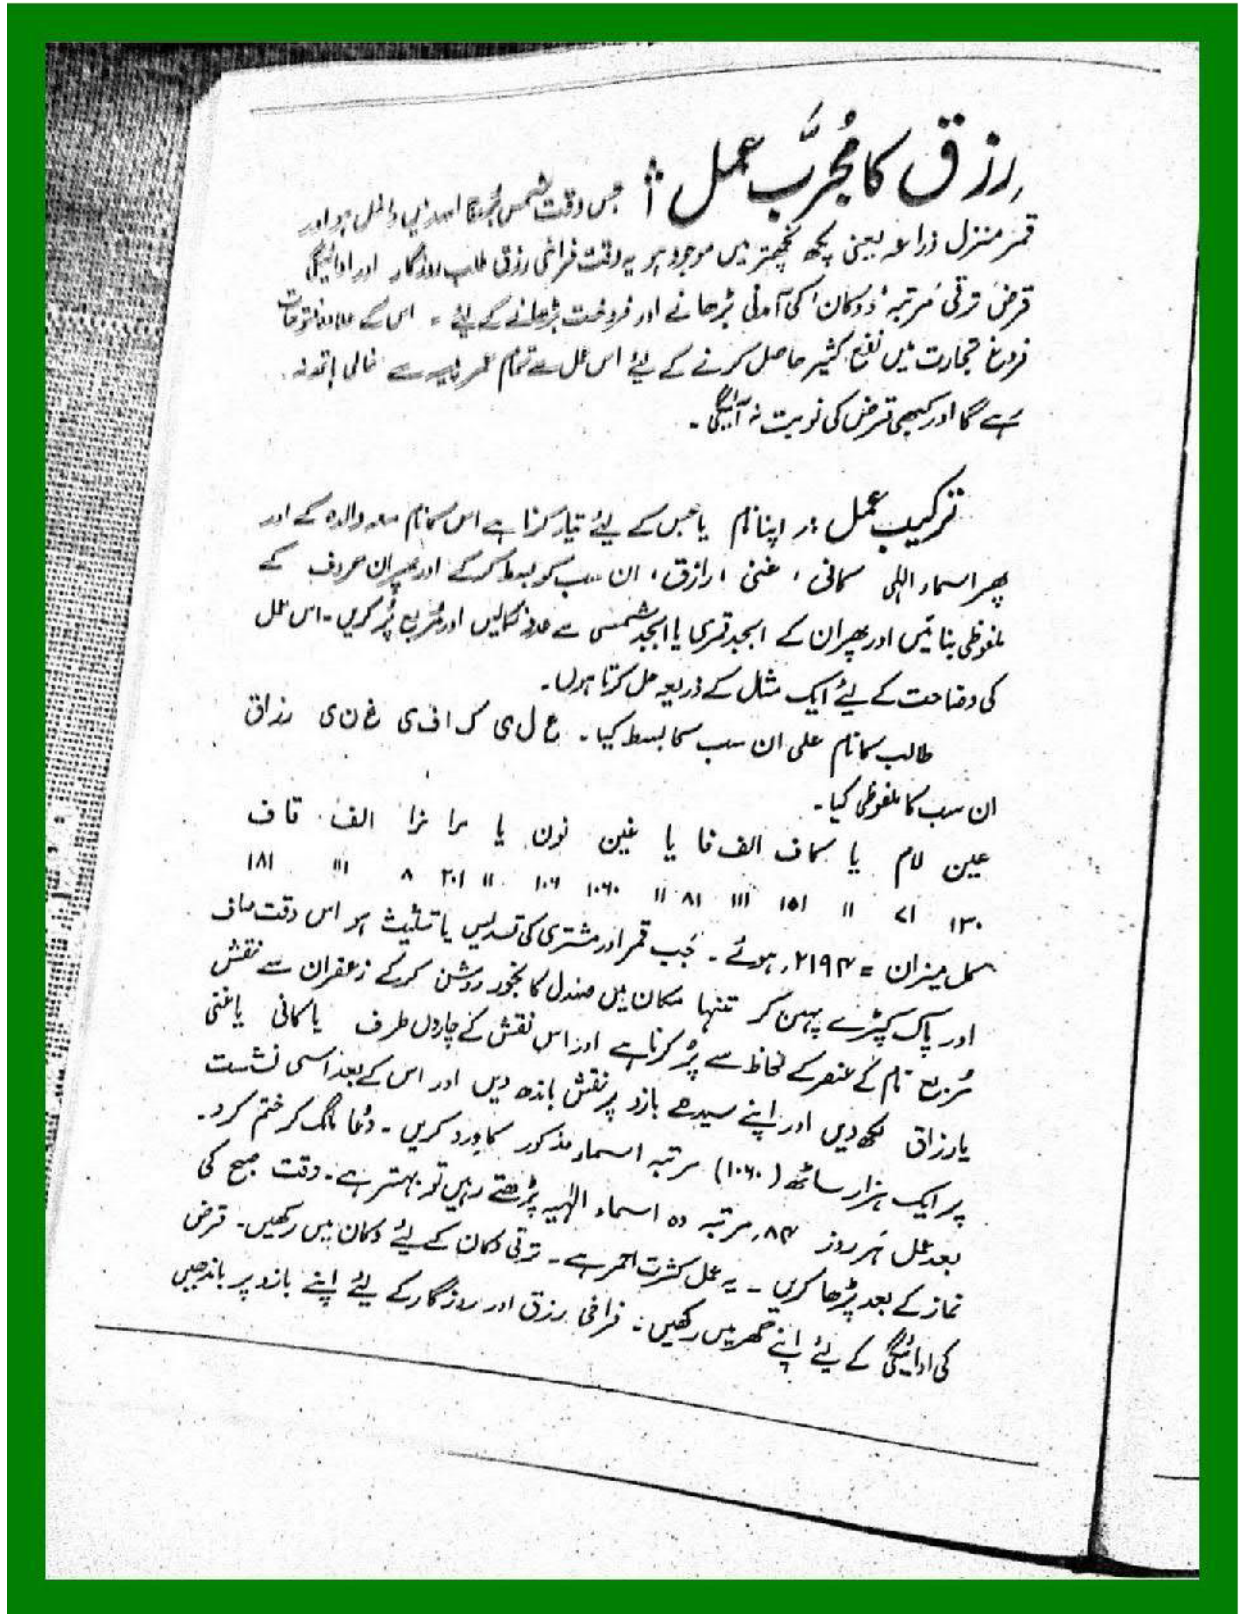 رزق کا مُجرَّب عمل :ـ جس وقت شمس برج اسد میں داخل ہو اور
قمر منزل ذراعہ یعنی پکھ نچھتر میں موجود ہو یہ وقت فراخی رزق طلب روزگار اور ادائیگی
قرض ترقی مرتبہ، دوکان کی آمدنی بڑھانے اور فروخت بڑھانے کے لیئے ۔ اس کے علاوہ فتوحات
فروغ تجارت میں نفع کثیر حاصل کرنے کے لیئے اس عمل سے تمام عمر پیسہ سے خالی ہاتھ نہ
رہے گا اور کبھی قرض کی نوبت نہ آئیگی ۔
ترکیب عمل :ـ اپنا نام یا جس کے لیئے تیار کرنا ہے اس کا نام معہ والدہ کے اور
پھر اسماء الٰہی کافی ، غنی ، رازق ، ان سب کو بسط کرکے اور پھر ان حروف کے
ملفوظی بنائیں اور پھر ان کے ابجد قمری یا ابجد شمسی سے عدد نکالیں اور مُربع پُر کریں ۔ اس عمل
کی وضاحت کے لیئے ایک مثال کے ذریعہ حل کرتا ہوں ۔
طالب کا نام علی ان سب کا بسط کیا ۔ ع ل ی ک ا ف ی غ ن ی ر ز ا ق
ان سب کا ملفوظی کیا ۔
عین لام یا کاف الف فا یا غین نون یا را زا الف قاف
۱۳۰ ۷۱ ۱۱ ۱۰۱ ۱۱۱ ۸۱ ۱۱ ۱۰۶۰ ۱۰۶ ۱۱ ۲۰۱ ۸ ۱۱۱ ۱۸۱
کل میزان = ۲۱۹۴ ہوئے ۔ جب قمر اور مشتری کی تسدیس یا تثلیث ہو اس وقت صاف
اور پاک کپڑے پہن کر تنہا مکان میں صندل کا بخور روشن کرکے زعفران سے نقش
مُربع نام کے عنصر کے لحاظ سے پُر کرنا ہے اور اس نقش کے چاروں طرف یا کافی یا غنی
یا رزاق لکھ دیں اور اپنے سیدھے بازو پر نقش باندھ دیں اور اس کے بعد اسی نشست
پر ایک ہزار ساٹھ (۱۰۶۰) مرتبہ اسماء مذکور کا ورد کریں ۔ دعا مانگ کر ختم کرد ۔
بعد عمل ہر روز ۸۴ مرتبہ وہ اسماء الٰہیہ پڑھتے رہیں تو بہتر ہے ۔ وقت صبح کی
نماز کے بعد پڑھا کریں ۔ یہ عمل کثرت احمر ہے ۔ ترقی دکان کے لیئے دکان میں رکھیں ۔ قرض
کی ادائیگی کے لیئے اپنے گھر میں رکھیں ۔ فراخی رزق اور روزگار کے لیئے اپنے بازو پر باندھیں